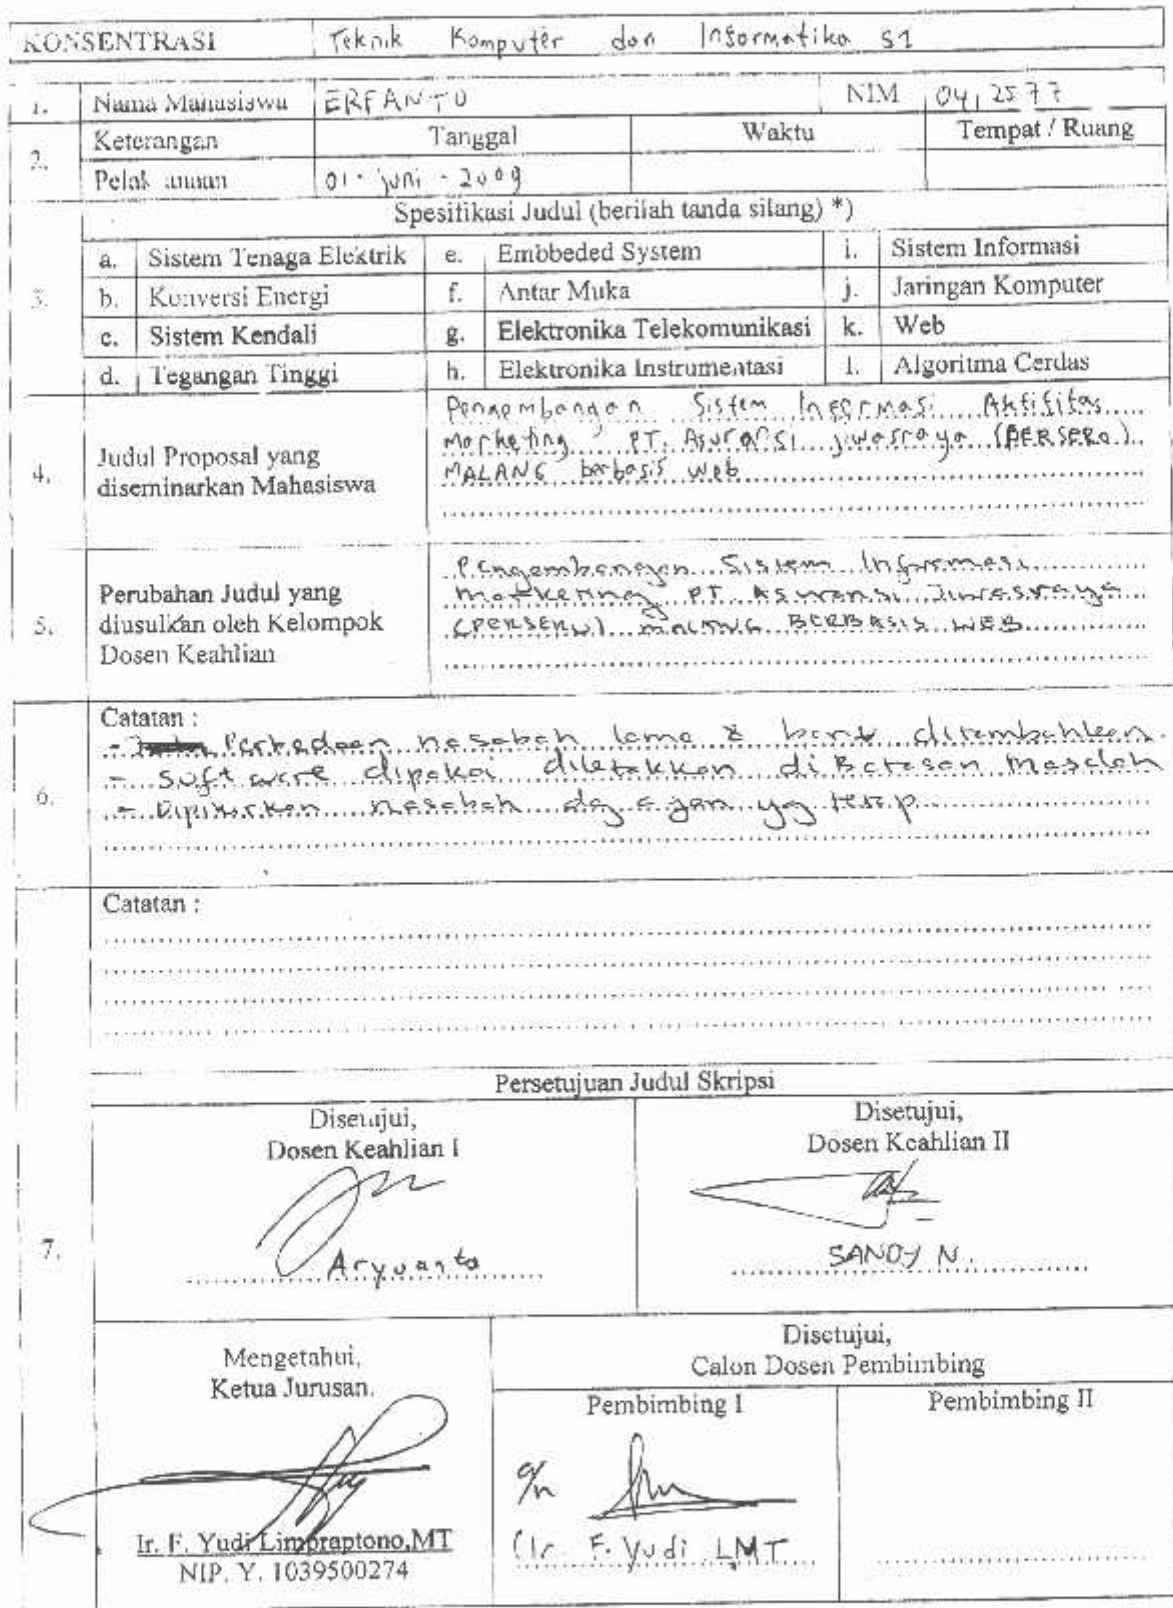 KONSENTRASI Teknik Komputer dan Informatika S1
1. Nama Mahasiswa ERFANTO NIM 0412577
2. Keterangan Tanggal Waktu Tempat / Ruang
Pelaksanaan 01 - juni - 2009
3. Spesifikasi Judul (berilah tanda silang) *)
a. Sistem Tenaga Elektrik e. Embbeded System i. Sistem Informasi
b. Konversi Energi f. Antar Muka j. Jaringan Komputer
c. Sistem Kendali g. Elektronika Telekomunikasi k. Web
d. Tegangan Tinggi h. Elektronika Instrumentasi l. Algoritma Cerdas
4. Judul Proposal yang
diseminarkan Mahasiswa
Pengembangan Sistem Informasi Aktifitas
Marketing PT. Asuransi jiwasraya (PERSERO)
MALANG berbasis Web
5. Perubahan Judul yang
diusulkan oleh Kelompok
Dosen Keahlian
Pengembangan Sistem Informasi
Marketing PT Asuransi Jiwasraya
(PERSERO) MALANG BERBASIS WEB
6. Catatan :
- Perbedaan nasabah lama & baru ditambahkan.
- Software dipakai diletakkan di Batasan Masalah
- Dipikirkan nasabah dg agen yg tetap
Catatan :
7. Persetujuan Judul Skripsi
Disetujui,
Dosen Keahlian I
Aryuanto
Disetujui,
Dosen Keahlian II
SANDY N.
Mengetahui,
Ketua Jurusan.
Ir. F. Yudi Limpraptono,MT
NIP. Y. 1039500274
Disetujui,
Calon Dosen Pembimbing
Pembimbing I Pembimbing II
a/n
(Ir. F. Yudi LMT